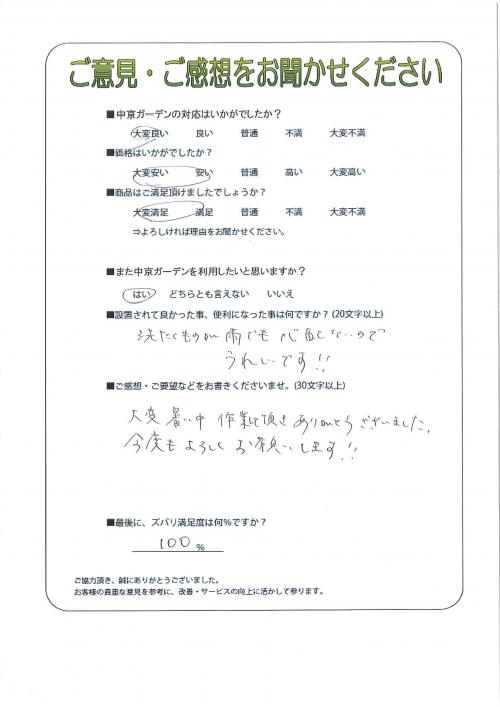 ご意見・ご感想をお聞かせください
■中京ガーデンの対応はいかがでしたか？
大変良い 良い 普通 不満 大変不満
■価格はいかがでしたか？
大変安い 安い 普通 高い 大変高い
■商品はご満足頂けましたでしょうか？
大変満足 満足 普通 不満 大変不満
⇒よろしければ理由をお聞かせください。
■また中京ガーデンを利用したいと思いますか？
はい どちらとも言えない いいえ
■設置されて良かった事、便利になった事は何ですか？(20文字以上)
洗たくものが雨でも心配ないので
うれしいです!!
■ご感想・ご要望などをお書きくださいませ。(30文字以上)
大変暑い中 作業して頂き ありがとうございました。
今度もよろしくお願いします!!
■最後に、ズバリ満足度は何％ですか？
100 %
ご協力頂き、誠にありがとうございました。
お客様の貴重な意見を参考に、改善・サービスの向上に活かして参ります。